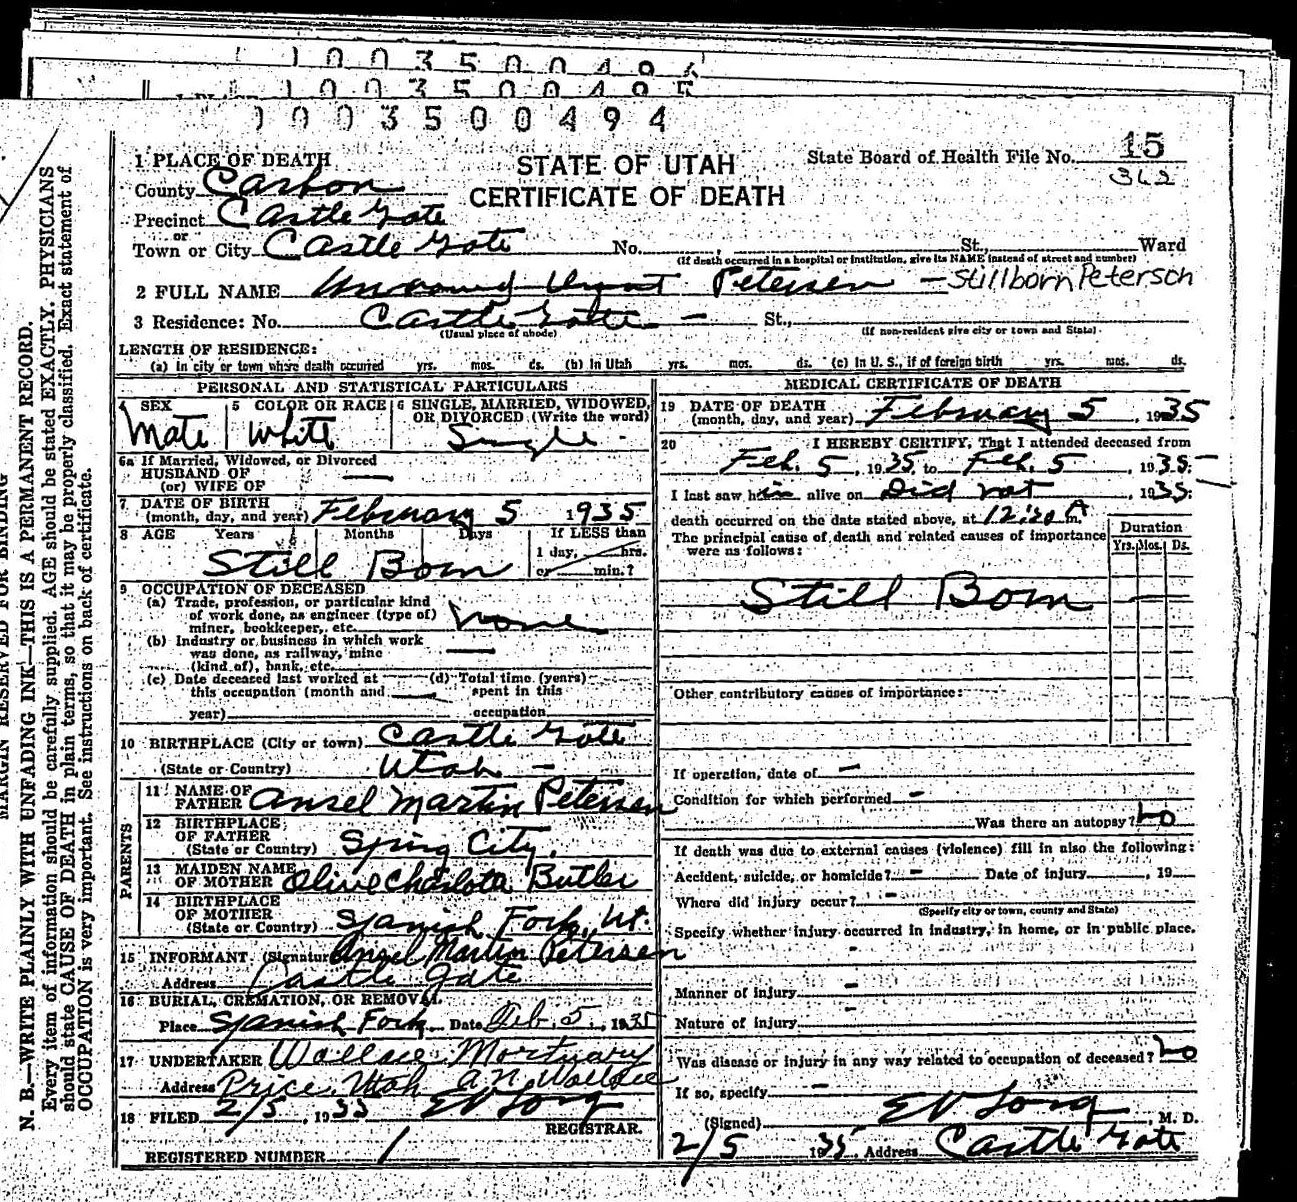 1003500496
1003500495
1003500494
1 PLACE OF DEATH
STATE OF UTAH
State Board of Health File No. 15
County Carbon
CERTIFICATE OF DEATH
362
Precinct Castle Gate
or
Town or City Castle Gate No. , St., Ward
(If death occurred in a hospital or institution, give its NAME instead of street and number)
2 FULL NAME Unnamed Infant Petersen - Stillborn Petersen
3 Residence: No. Castle Gate - St.,
(Usual place of abode) (If non-resident give city or town and State)
LENGTH OF RESIDENCE:
(a) In city or town where death occurred yrs. mos. ds. (b) In Utah yrs. mos. ds. (c) In U. S., if of foreign birth yrs. mos. ds.
PERSONAL AND STATISTICAL PARTICULARS
4 SEX 5 COLOR OR RACE 6 SINGLE, MARRIED, WIDOWED, OR DIVORCED (Write the word)
Male White Single
6a If Married, Widowed, or Divorced
HUSBAND OF
(or) WIFE OF —
7 DATE OF BIRTH
(month, day, and year) February 5 1935
8 AGE Years Months Days If LESS than
1 day, hrs.
or min.?
Still Born
9 OCCUPATION OF DECEASED
(a) Trade, profession, or particular kind
of work done, as engineer (type of)
miner, bookkeeper, etc. None
(b) Industry or business in which work
was done, as railway, mine
(kind of), bank, etc. —
(c) Date deceased last worked at
this occupation (month and
year)
(d) Total time (years)
spent in this
occupation
10 BIRTHPLACE (City or town) Castle Gate
(State or Country) Utah -
PARENTS
11 NAME OF
FATHER Ansel Martin Petersen
12 BIRTHPLACE
OF FATHER
(State or Country) Spring City,
13 MAIDEN NAME
OF MOTHER Olive Charlota Butler
14 BIRTHPLACE
OF MOTHER
(State or Country) Spanish Fork, Ut.
15 INFORMANT (Signature) Ansel Martin Petersen
Address Castle Gate
16 BURIAL, CREMATION, OR REMOVAL
Place Spanish Fork Date Feb. 5, 1935
17 UNDERTAKER Wallace Mortuary
Address Price, Utah A N Wallace
18 FILED 2/5, 1935 E V Long
REGISTRAR.
REGISTERED NUMBER 1
MEDICAL CERTIFICATE OF DEATH
19 DATE OF DEATH
(month, day, and year) February 5, 1935
20 I HEREBY CERTIFY, That I attended deceased from
Feb. 5, 1935, to Feb. 5, 1935
I last saw him alive on Did not, 1935
death occurred on the date stated above, at 12:20 A m.
The principal cause of death and related causes of importance
were as follows:
Duration
Yrs. Mos. Ds.
Still Born —
Other contributory causes of importance:
If operation, date of —
Condition for which performed -
Was there an autopsy? No
If death was due to external causes (violence) fill in also the following:
Accident, suicide, or homicide? - Date of injury , 19
Where did injury occur? -
(Specify city or town, county and State)
Specify whether injury occurred in industry, in home, or in public place.
-
Manner of injury -
Nature of injury -
Was disease or injury in any way related to occupation of deceased? No
If so, specify -
(Signed) E V Long, M. D.
2/5 1935, Address Castle Gate
MARGIN RESERVED FOR BINDING
N. B.—WRITE PLAINLY WITH UNFADING INK—THIS IS A PERMANENT RECORD.
Every item of information should be carefully supplied. AGE should be stated EXACTLY. PHYSICIANS
should state CAUSE OF DEATH in plain terms, so that it may be properly classified. Exact statement of
OCCUPATION is very important. See instructions on back of certificate.